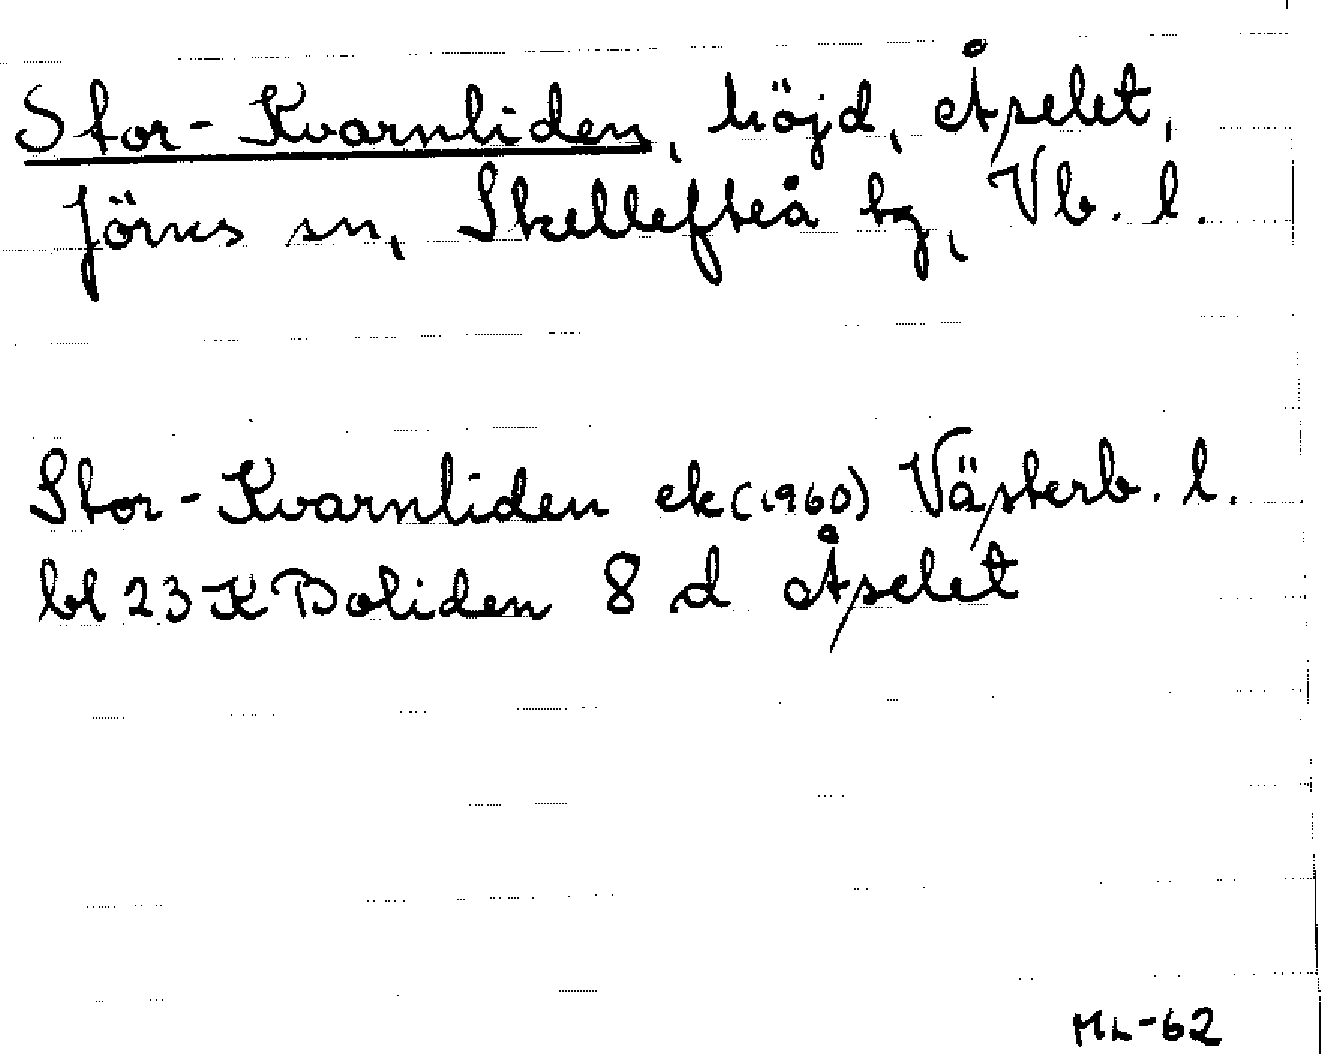 Stor-Kvarnliden, höjd, Åselet,
Jörns sn, Skellefteå tg, Vb. l.
Stor-Kvarnliden ek(1960) Västerb. l.
bl 23 K Boliden 8 d Åselet
ML-62